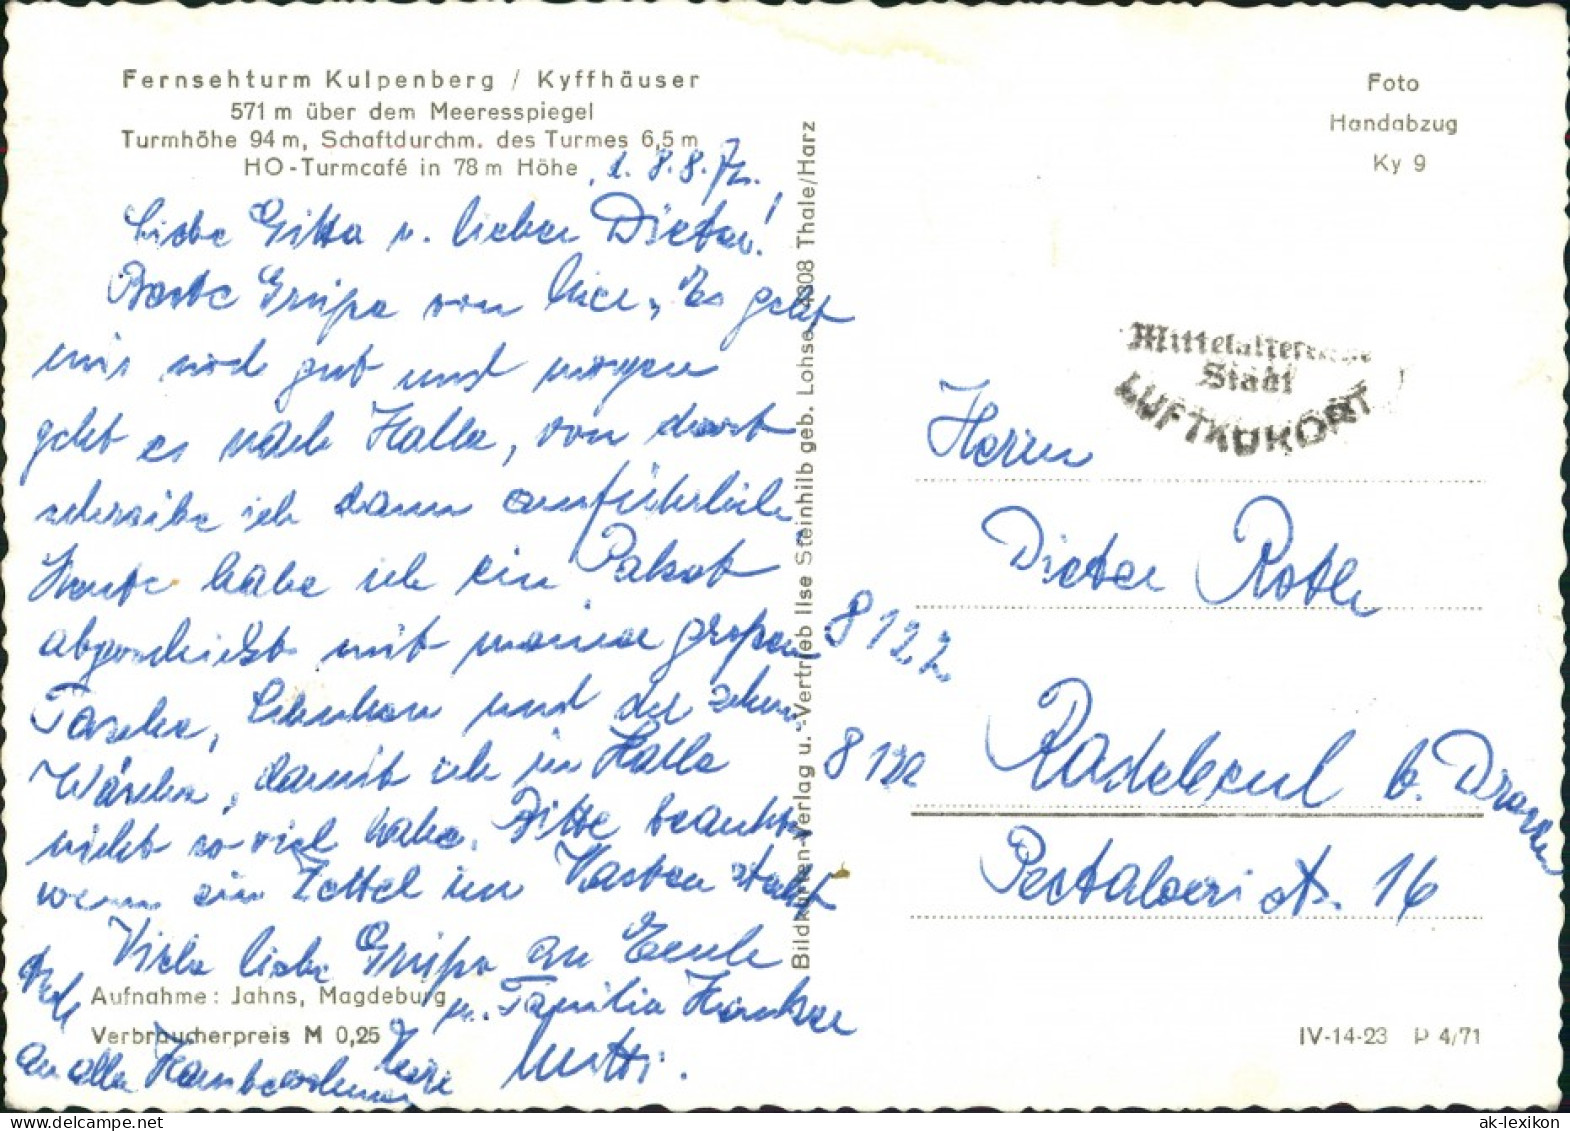 Fernsehturm Kulpenberg / Kyffhäuser
571 m über dem Meeresspiegel
Turmhöhe 94 m, Schaftdurchm. des Turmes 6,5 m
HO-Turmcafé in 78 m Höhe
8.8.72.
Liebe Gitta u. lieber Dieter!
Beste Grüße von hier. Es geht
mir noch gut und morgen
geht es nach Halle, von dort
schreibe ich dann ausführlich.
Heute habe ich ein Paket
abgeschickt mit meiner großen
Tasche, und
Wäsche, damit ich in Halle
nicht so viel habe. Bitte beachten
wenn ein Zettel im Kasten steckt
Viele liebe Grüße an Euch
u. Familie
Mutti.
an alle Hausbewohner
Aufnahme: Jahns, Magdeburg
Verbraucherpreis M 0,25
Bildkarten-Verlag u. -Vertrieb Ilse Steinhilb geb. Lohse, 4308 Thale/Harz
Foto
Handabzug
Ky 9
Mittelalterliche
Stadt
LUFTKURORT
Herrn
Dieter Roth
8122
8122
Radebeul b. Dresden
Pestalozzi str. 16
IV-14-23 P 4/71
ak-lexikon